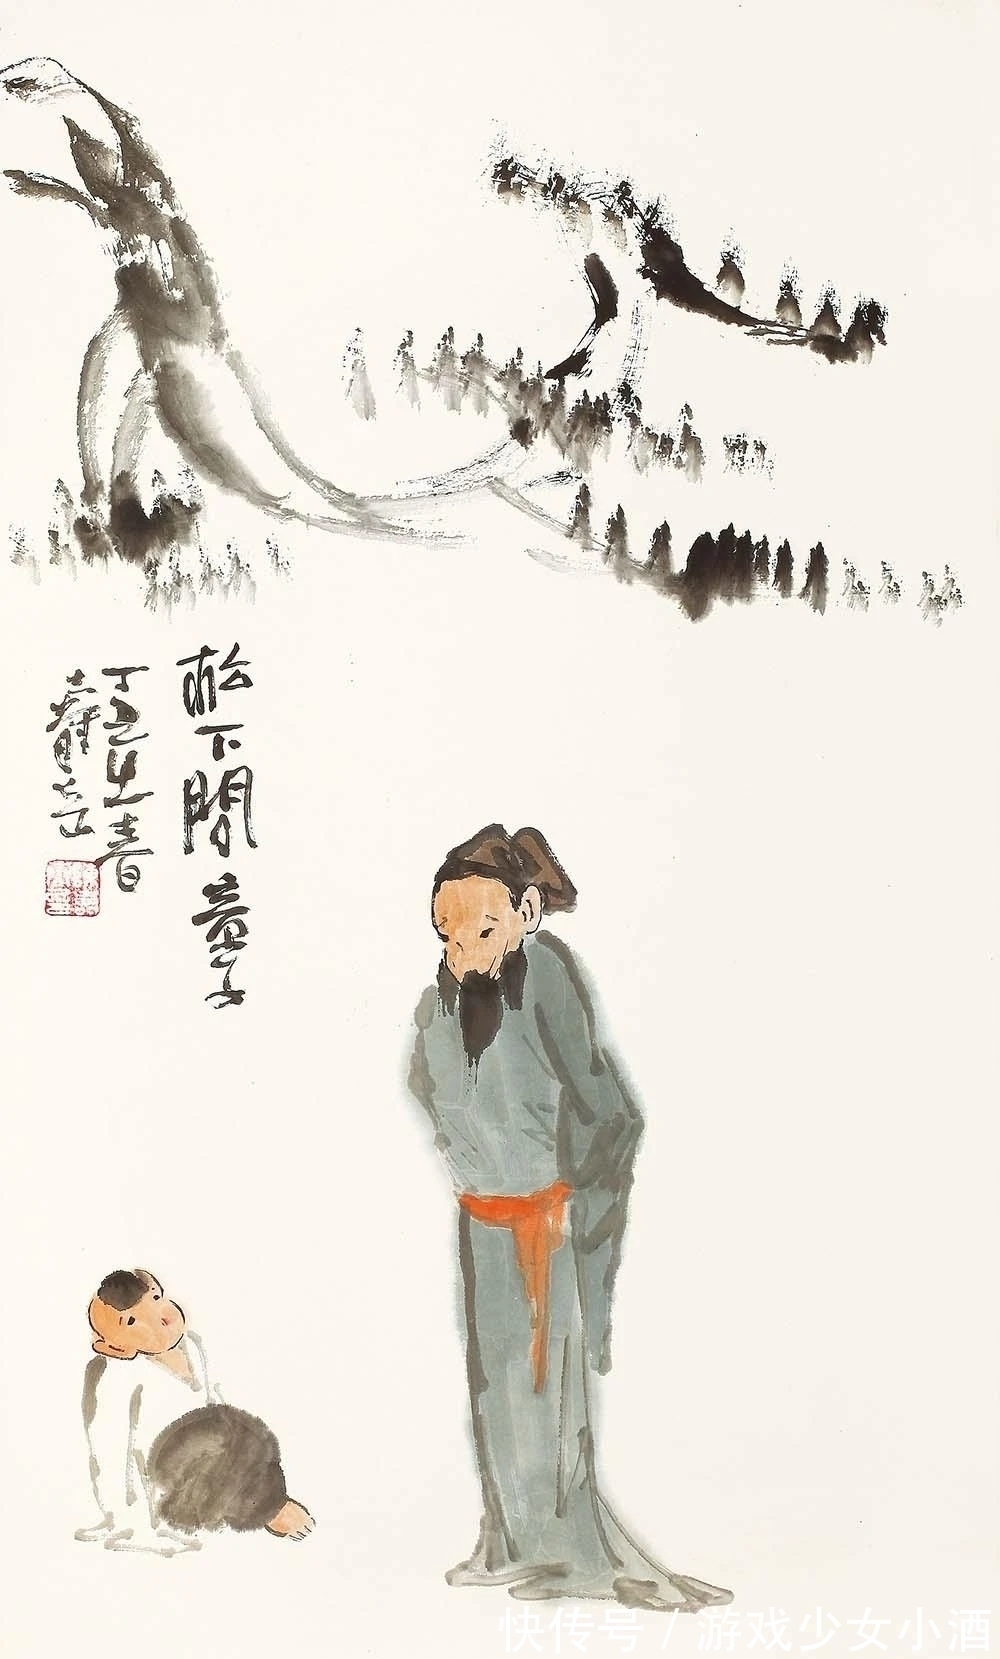 松下問童子
丁丑之春
壽岳
快传号 / 游戏少女小酒